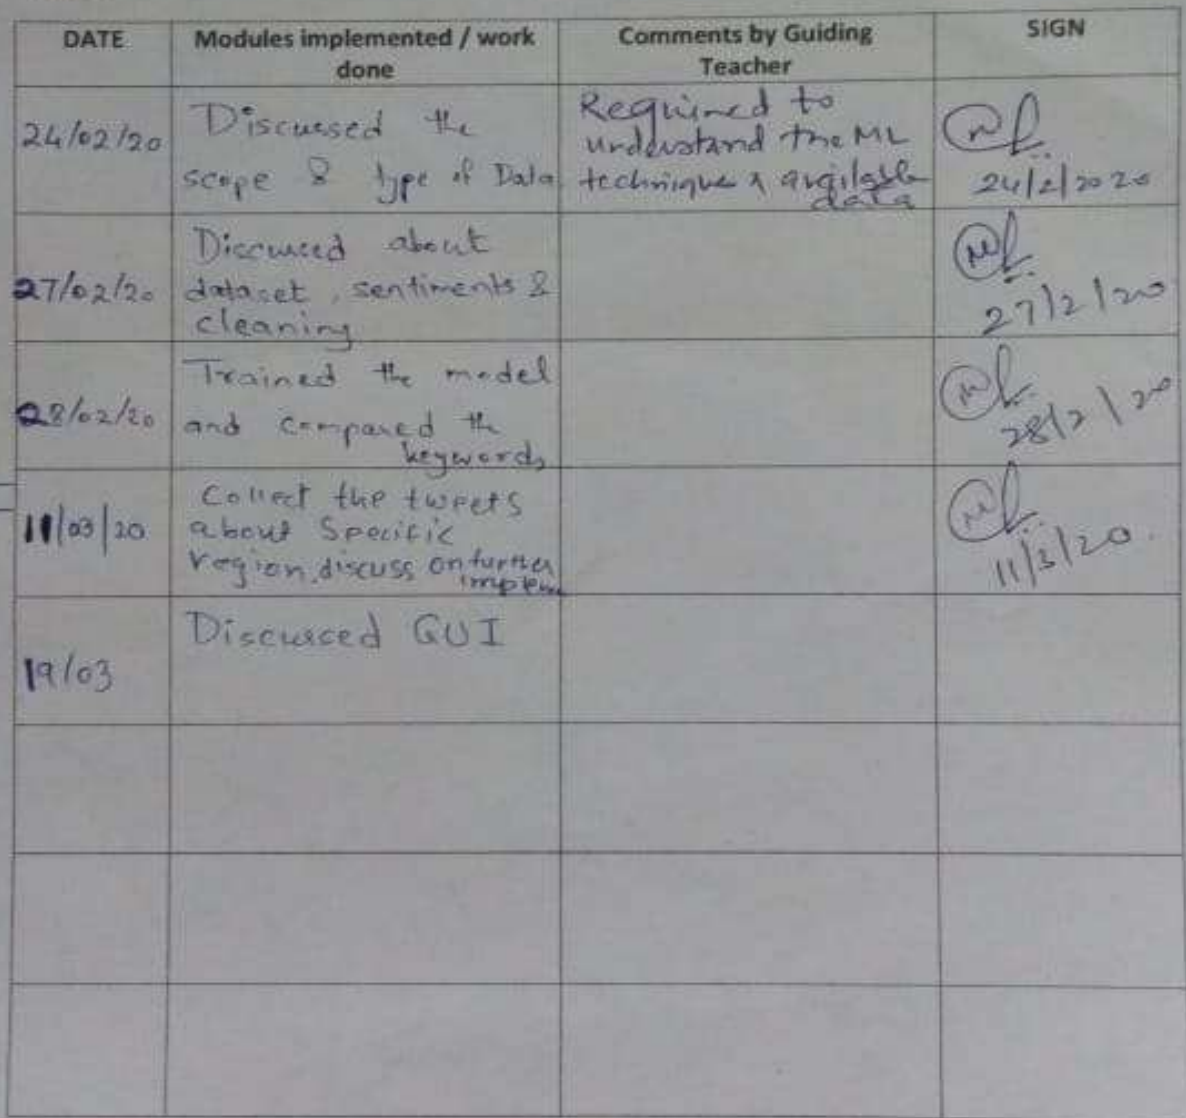 DATE
Modules implemented / work
done
Comments by Guiding
Teacher
SIGN
24/02/20
Discussed the
scope & type of Data
Required to
understand the ML
technique & available
data
24/2/2020
27/02/20
Discussed about
dataset, sentiments &
cleaning
27/2/20
28/02/20
Trained the model
and compared the
keywords
28/2/20
11/03/20
Collect the tweets
about Specific
region, discuss on further
implem
11/3/20.
19/03
Discussed GUI